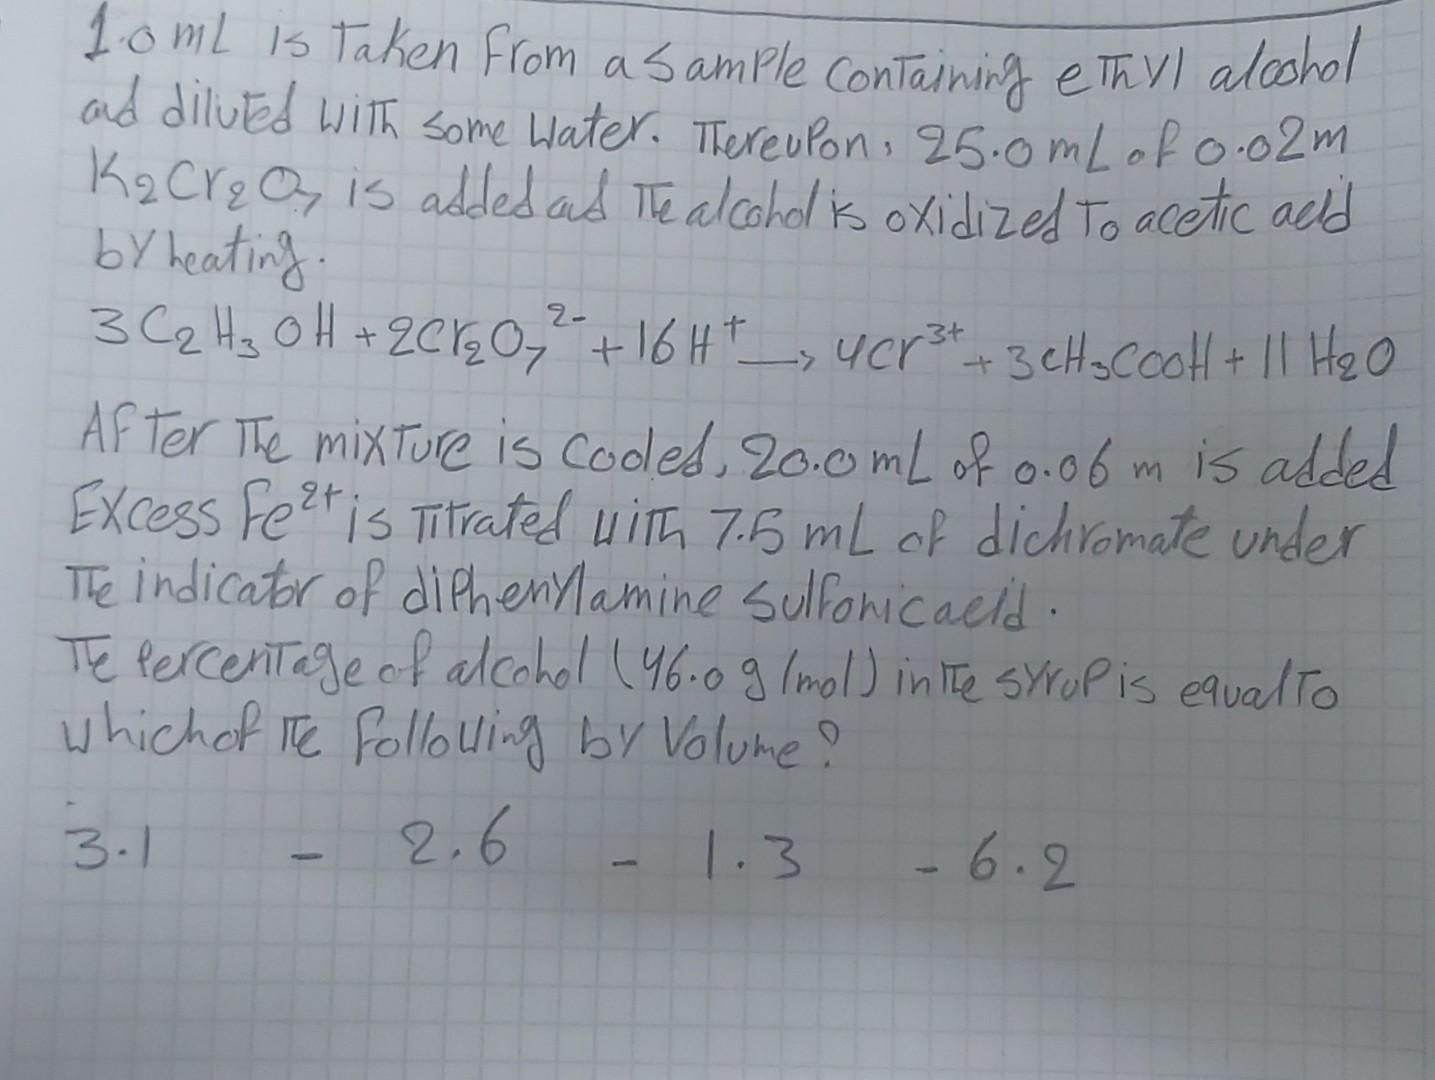 1.0 mL is Taken from a sample containing eThyl alcohol
ad diluted with some water. Thereupon, 25.0 mL of 0.02m
K2Cr2O7 is added ad The alcohol is oxidized To acetic acid
by heating.
3C2H3OH + 2Cr2O7²⁻ + 16H⁺ → 4cr³⁺ + 3cH3COOH + 11 H2O
After The mixTure is cooled, 20.0 mL of 0.06 m is added
Excess Fe²⁺ is Titrated with 7.5 mL of dichromate under
The indicator of diphenylamine sulfonic acid.
The PercenTage of alcohol (46.0 g/mol) in The syrup is equal To
which of The following by Volume?
3.1 - 2.6 - 1.3 - 6.2